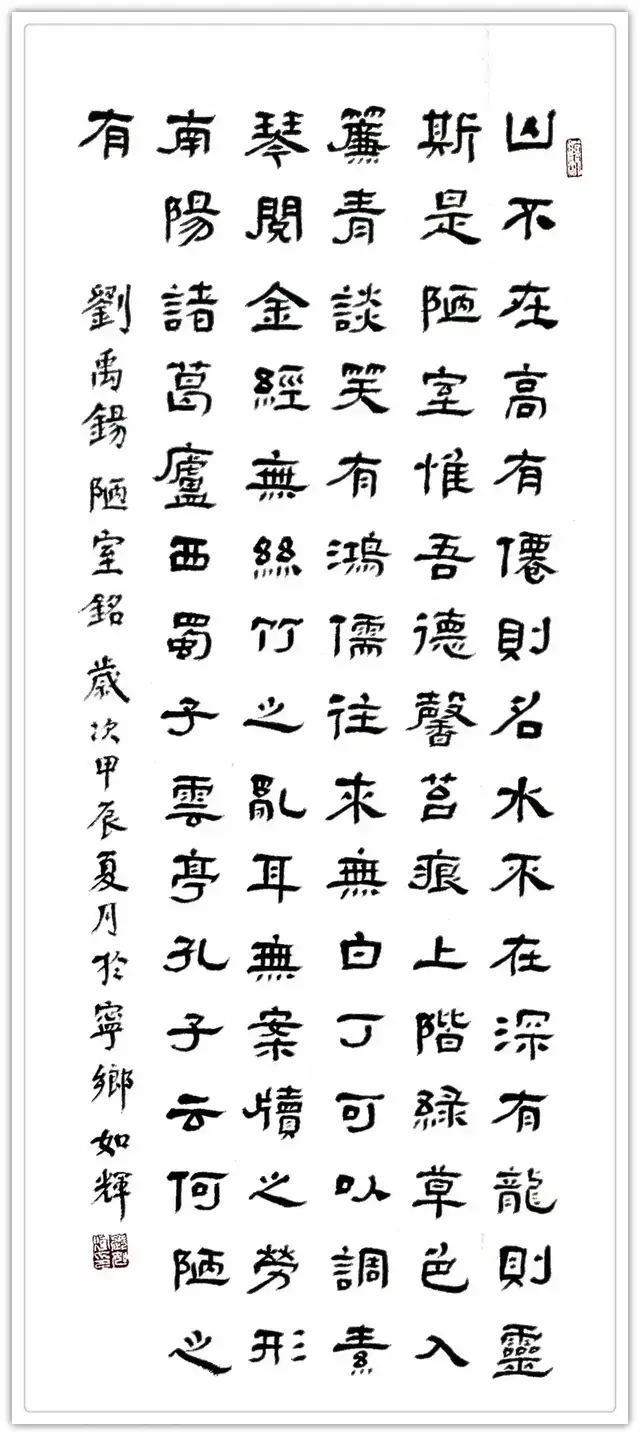 山不在高有僊則名水不在深有龍則靈
斯是陋室惟吾德馨苔痕上階緑草色入
簾青談笑有鴻儒往來無白丁可以調素
琴閱金經無絲竹之亂耳無案牘之勞形
南陽諸葛廬西蜀子雲亭孔子云何陋之
有
劉禹錫陋室銘歲次甲辰夏月於寧鄉如輝